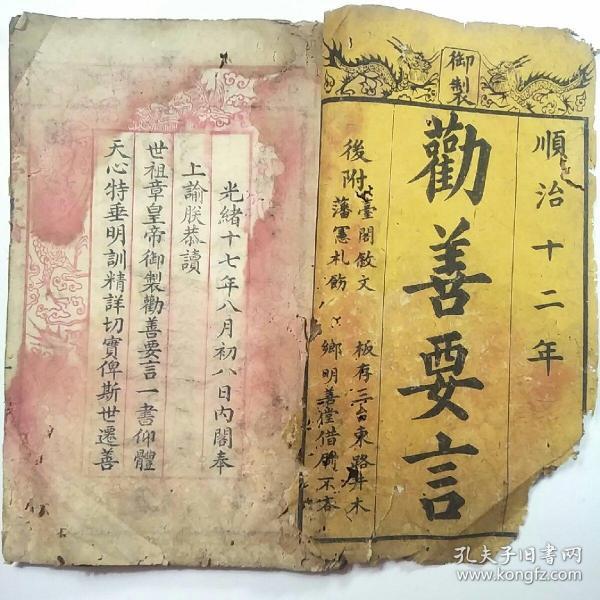 御製
順治十二年
勸善要言
後附臺閣敬文
藩憲札飭
板存三台東路井木
鄉明善堂借刷不吝
光緒十七年八月初八日內閣奉
上諭朕恭讀
世祖章皇帝御製勸善要言一書仰體
天心特垂明訓精詳切實俾斯世遷善
孔夫子旧书网
www.kongfz.com